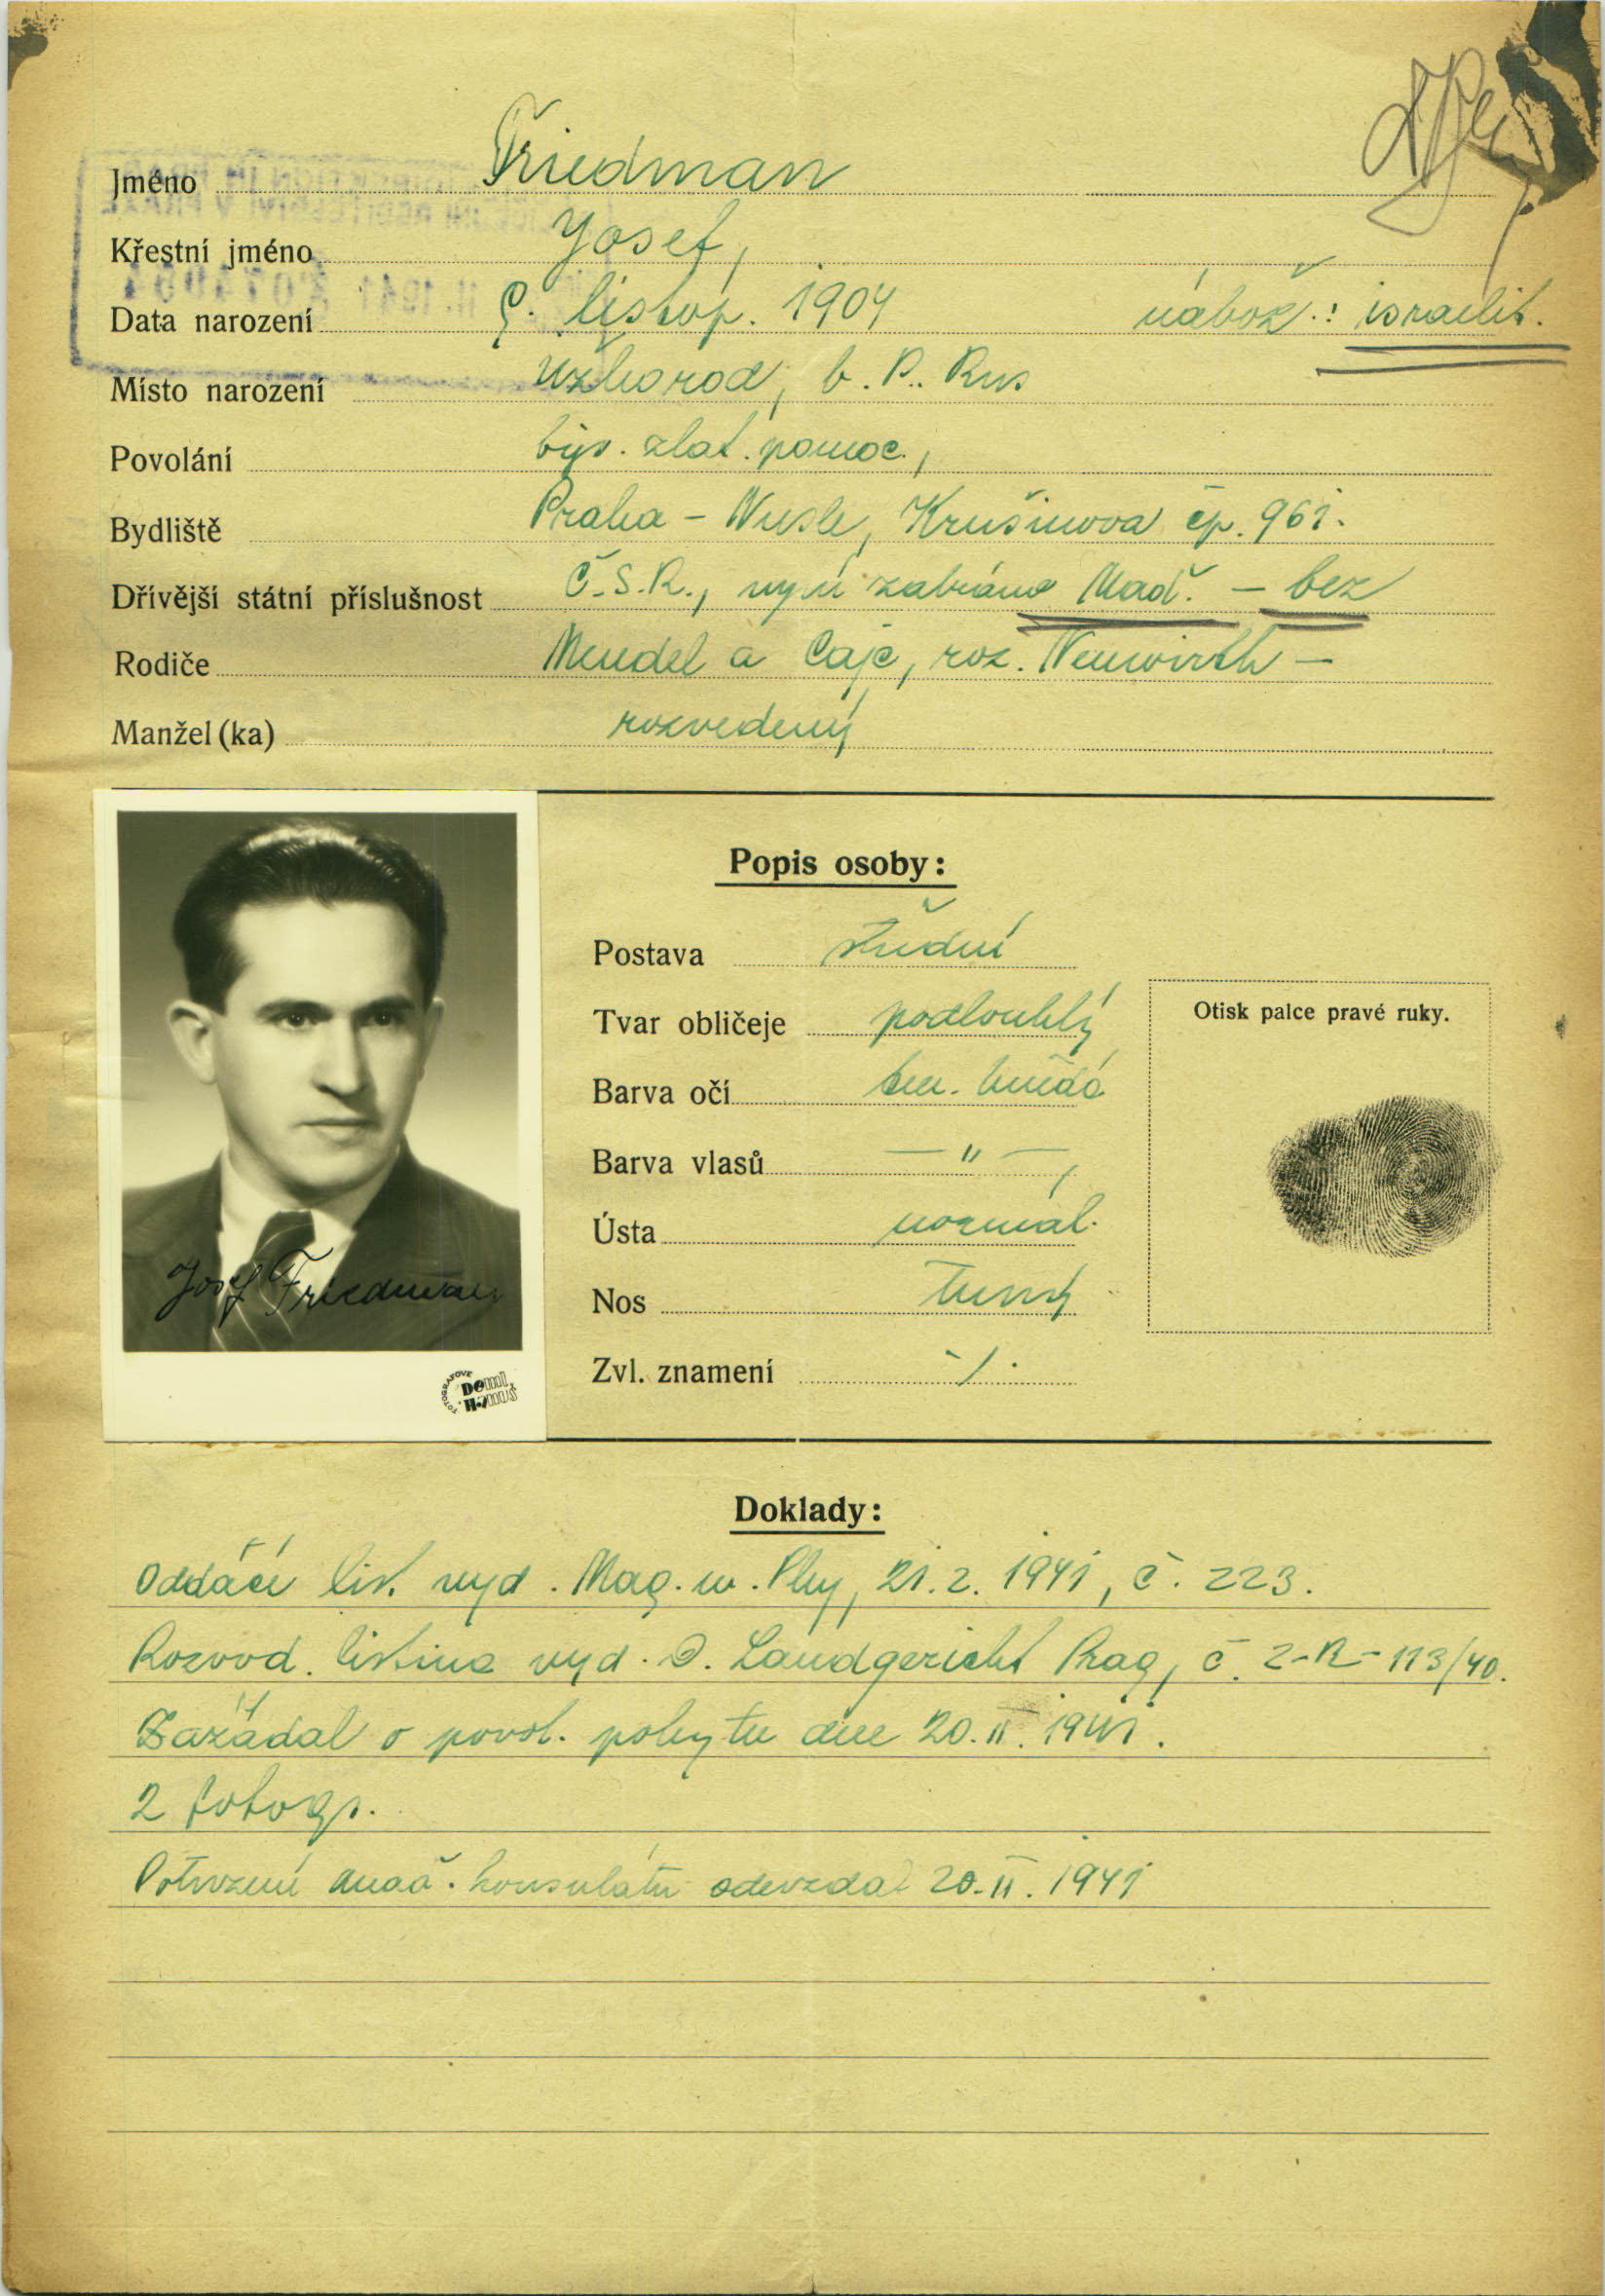 Jméno Friedman
Křestní jméno Josef,
Data narození 9. listop. 1904 nábož.: israelit.
Místo narození Užhorod, b. P. Rus
Povolání býv. zlat. pomoc.,
Bydliště Praha - Nusle, Krušinova čp. 961.
Dřívější státní příslušnost Č.S.R., nyní zabráno Maď. - bez
Rodiče Mendel a Caje, roz. Neuwirth -
Manžel(ka) rozvedený
Popis osoby:
Postava střední
Tvar obličeje podlouhlý
Barva očí tm. hnědá
Barva vlasů — " —,
Ústa normál.
Nos
Zvl. znamení ./.
Otisk palce pravé ruky.
Josef Friedman
FOTOGRAFOVÉ
Deml,
Hanuš
Doklady:
Oddací list. vyd. Mag. m. Phy, 21.2.1941, č. 223.
Rozvod. listina vyd. D. Landgericht Prag, č. 2-R-113/40.
Zažádal o povol. pobytu dne 20.II.1941.
2 fotogr.
Potvrzení maď. konsulátu odevzdal 20.II.1941